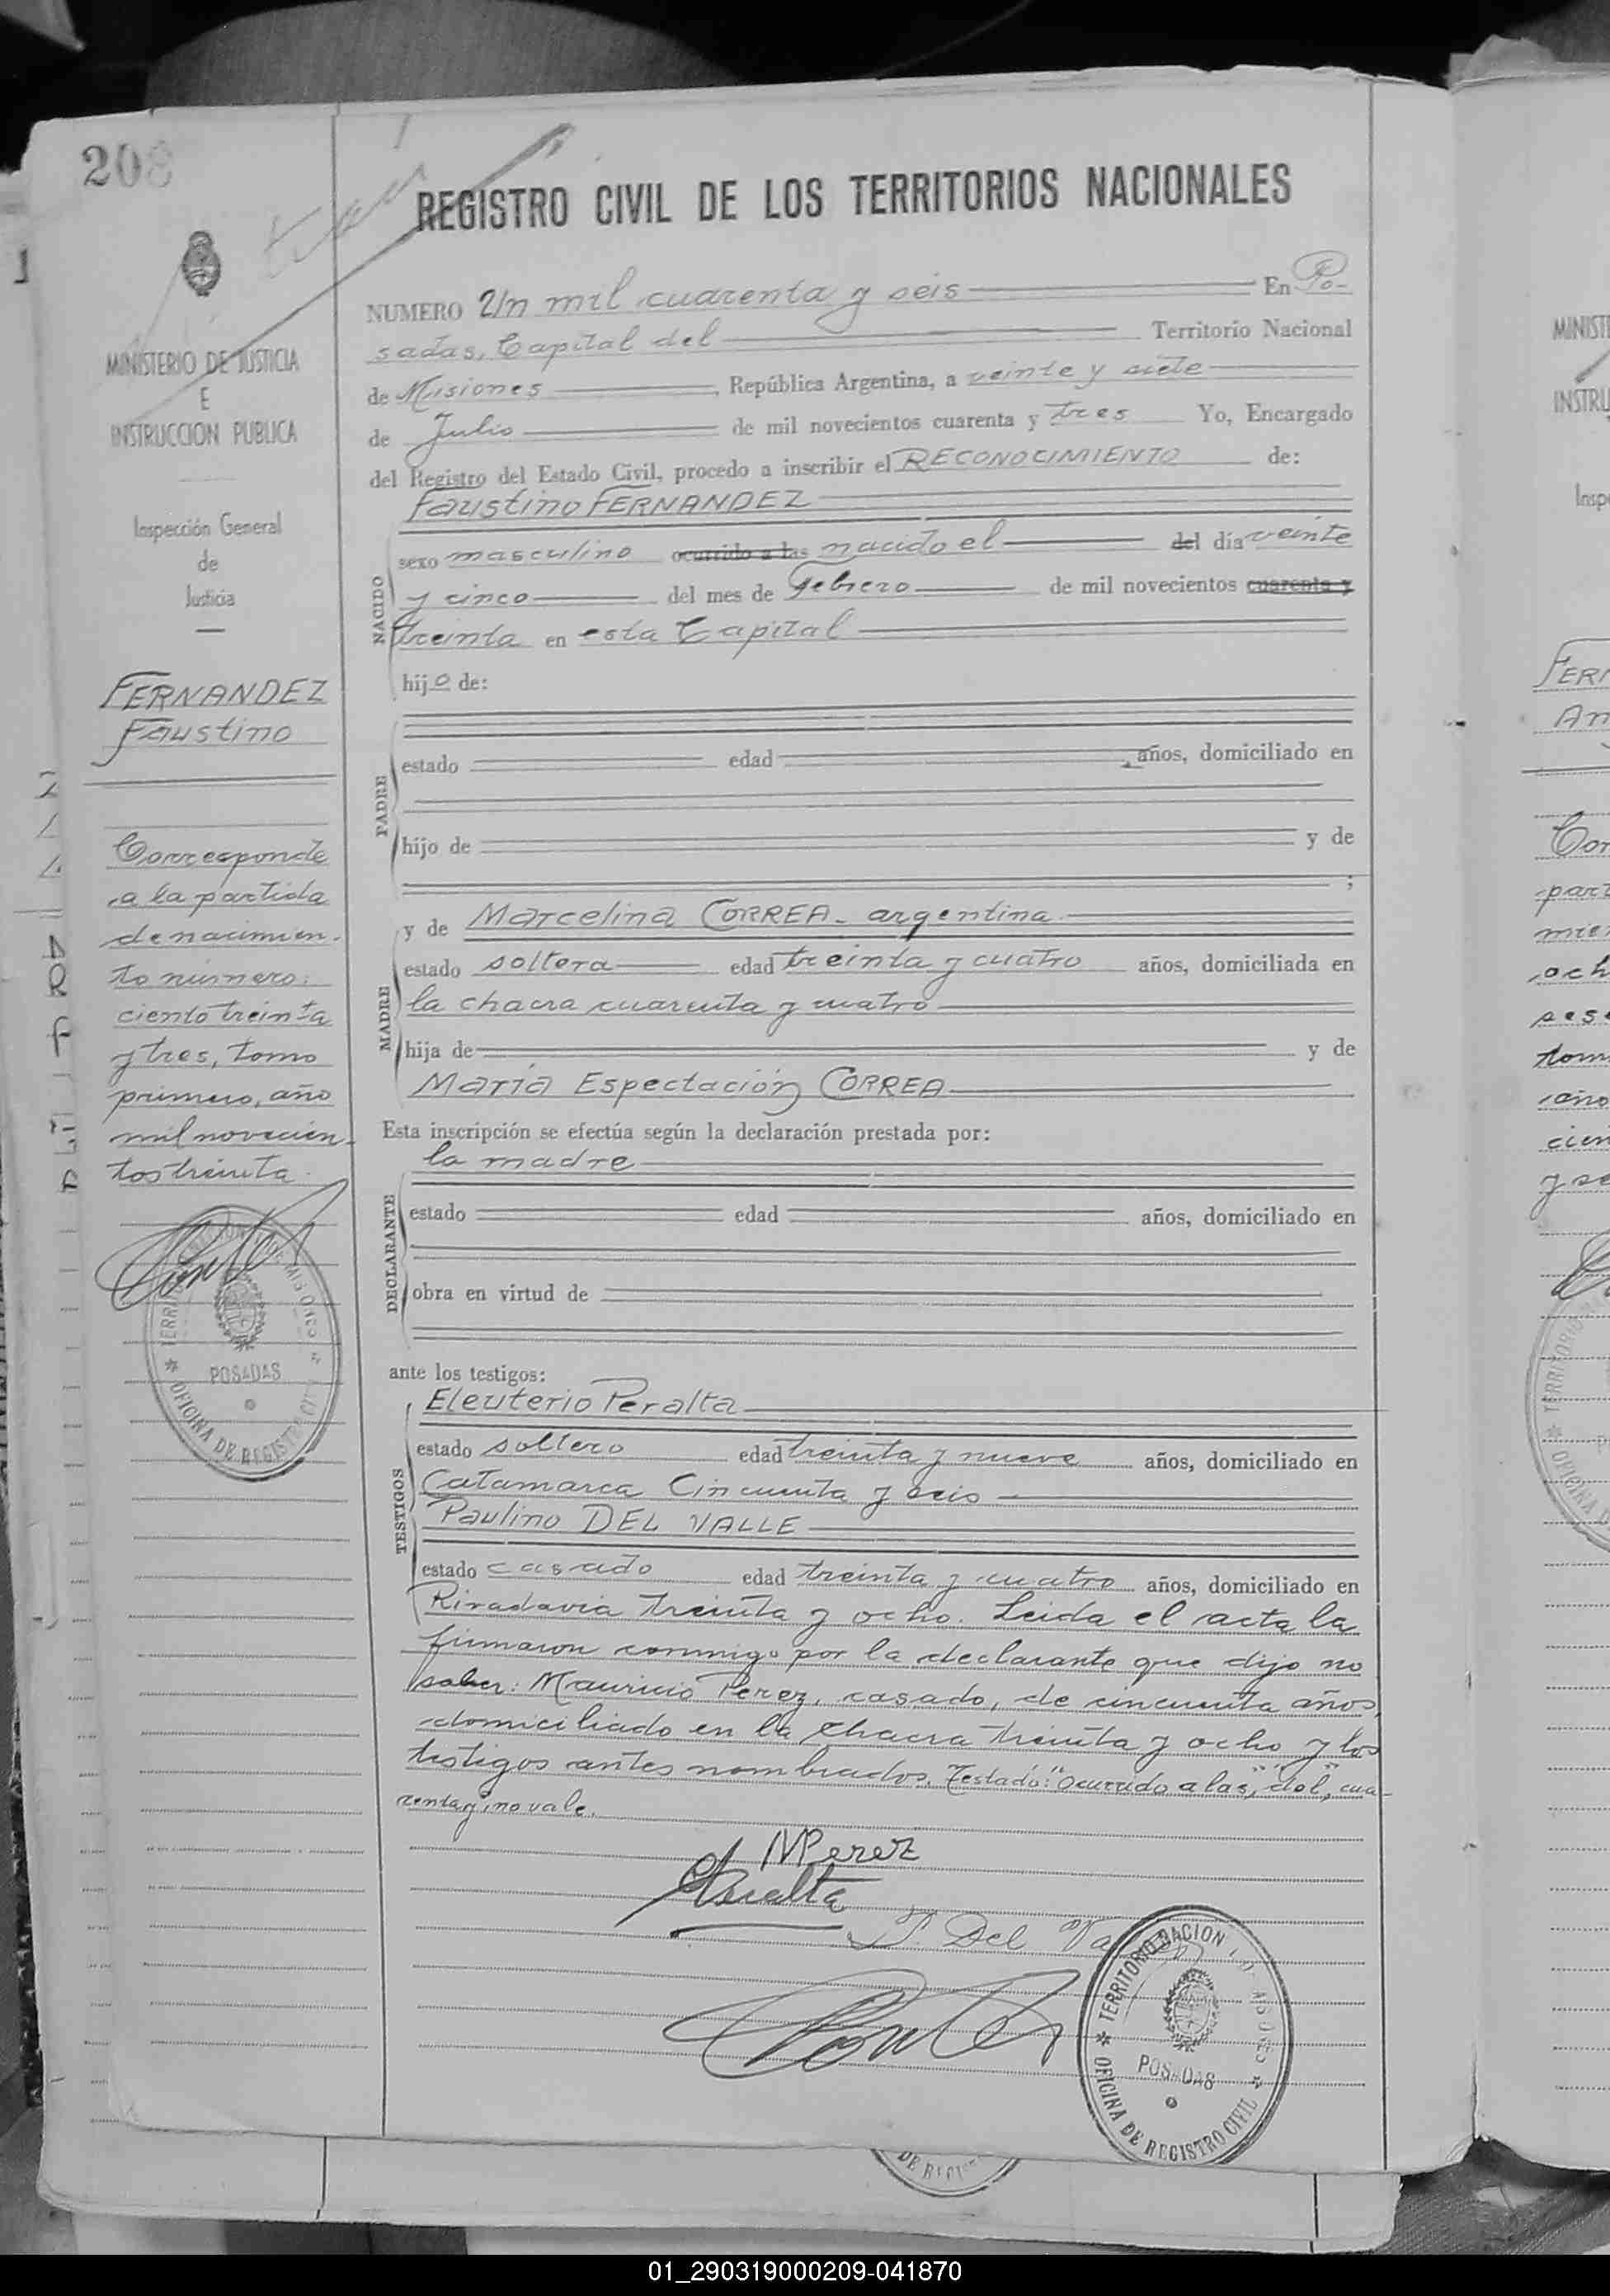 208
REGISTRO CIVIL DE LOS TERRITORIOS NACIONALES
NUMERO Un mil cuarenta y seis En Po-
sadas, Capital del Territorio Nacional
de Misiones, República Argentina, a veinte y siete
de Julio de mil novecientos cuarenta y tres Yo, Encargado
del Registro del Estado Civil, procedo a inscribir el RECONOCIMIENTO de:
Faustino FERNANDEZ
NACIDO
sexo masculino ocurrido a las nacido el del día veinte
y cinco del mes de Febrero de mil novecientos cuarenta y
treinta en esta Capital
hijo de:
PADRE
estado edad años, domiciliado en
hijo de y de
;
MADRE
y de Marcelina CORREA - argentina
estado soltera edad treinta y cuatro años, domiciliada en
la chacra cuarenta y cuatro
hija de y de
María Espectación CORREA
Esta inscripción se efectúa según la declaración prestada por:
la madre
DECLARANTE
estado edad años, domiciliado en
obra en virtud de
ante los testigos:
TESTIGOS
Eleuterio Peralta
estado soltero edad treinta y nueve años, domiciliado en
Catamarca Cincuenta y seis
Paulino DEL VALLE
estado casado edad treinta y cuatro años, domiciliado en
Rivadavia treinta y ocho. Leida el acta la
firmaron conmigo por la declarante que dijo no
saber: Mauricio Perez, casado, de cincuenta años,
domiciliado en la chacra treinta y ocho y los
testigos antes nombrados. Testado: "ocurrido a las", "del", cua-
renta y, no vale.
MPerez
Peralta
P. Del Va
TERRITORIO NACION
POSADAS
OFICINA DE REGISTRO CIVIL
MINISTERIO DE JUSTICIA
E
INSTRUCCION PUBLICA
Inspección General
de
Justicia
FERNANDEZ
Faustino
Corresponde
a la partida
de nacimien-
to número:
ciento treinta
y tres, tomo
primero, año
mil novecien-
tos treinta.
POSADAS
OFICINA DE REGISTRO CIVIL
DE REGIS
MINIST
INSTRU
Insp
FER
An
Cor
part
mie
och
ses
tom
año
cien
y se
01_290319000209-041870